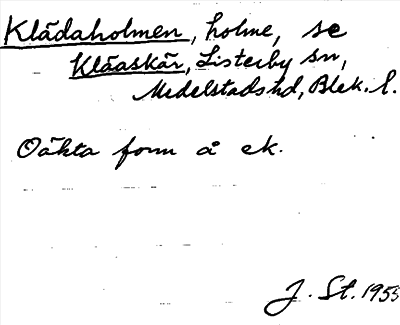 Klädaholmen, holme, se
Klåaskär, Listerby sn,
Medelstads hd, Blek. l.
Oäkta form å ek.
J. St. 1955